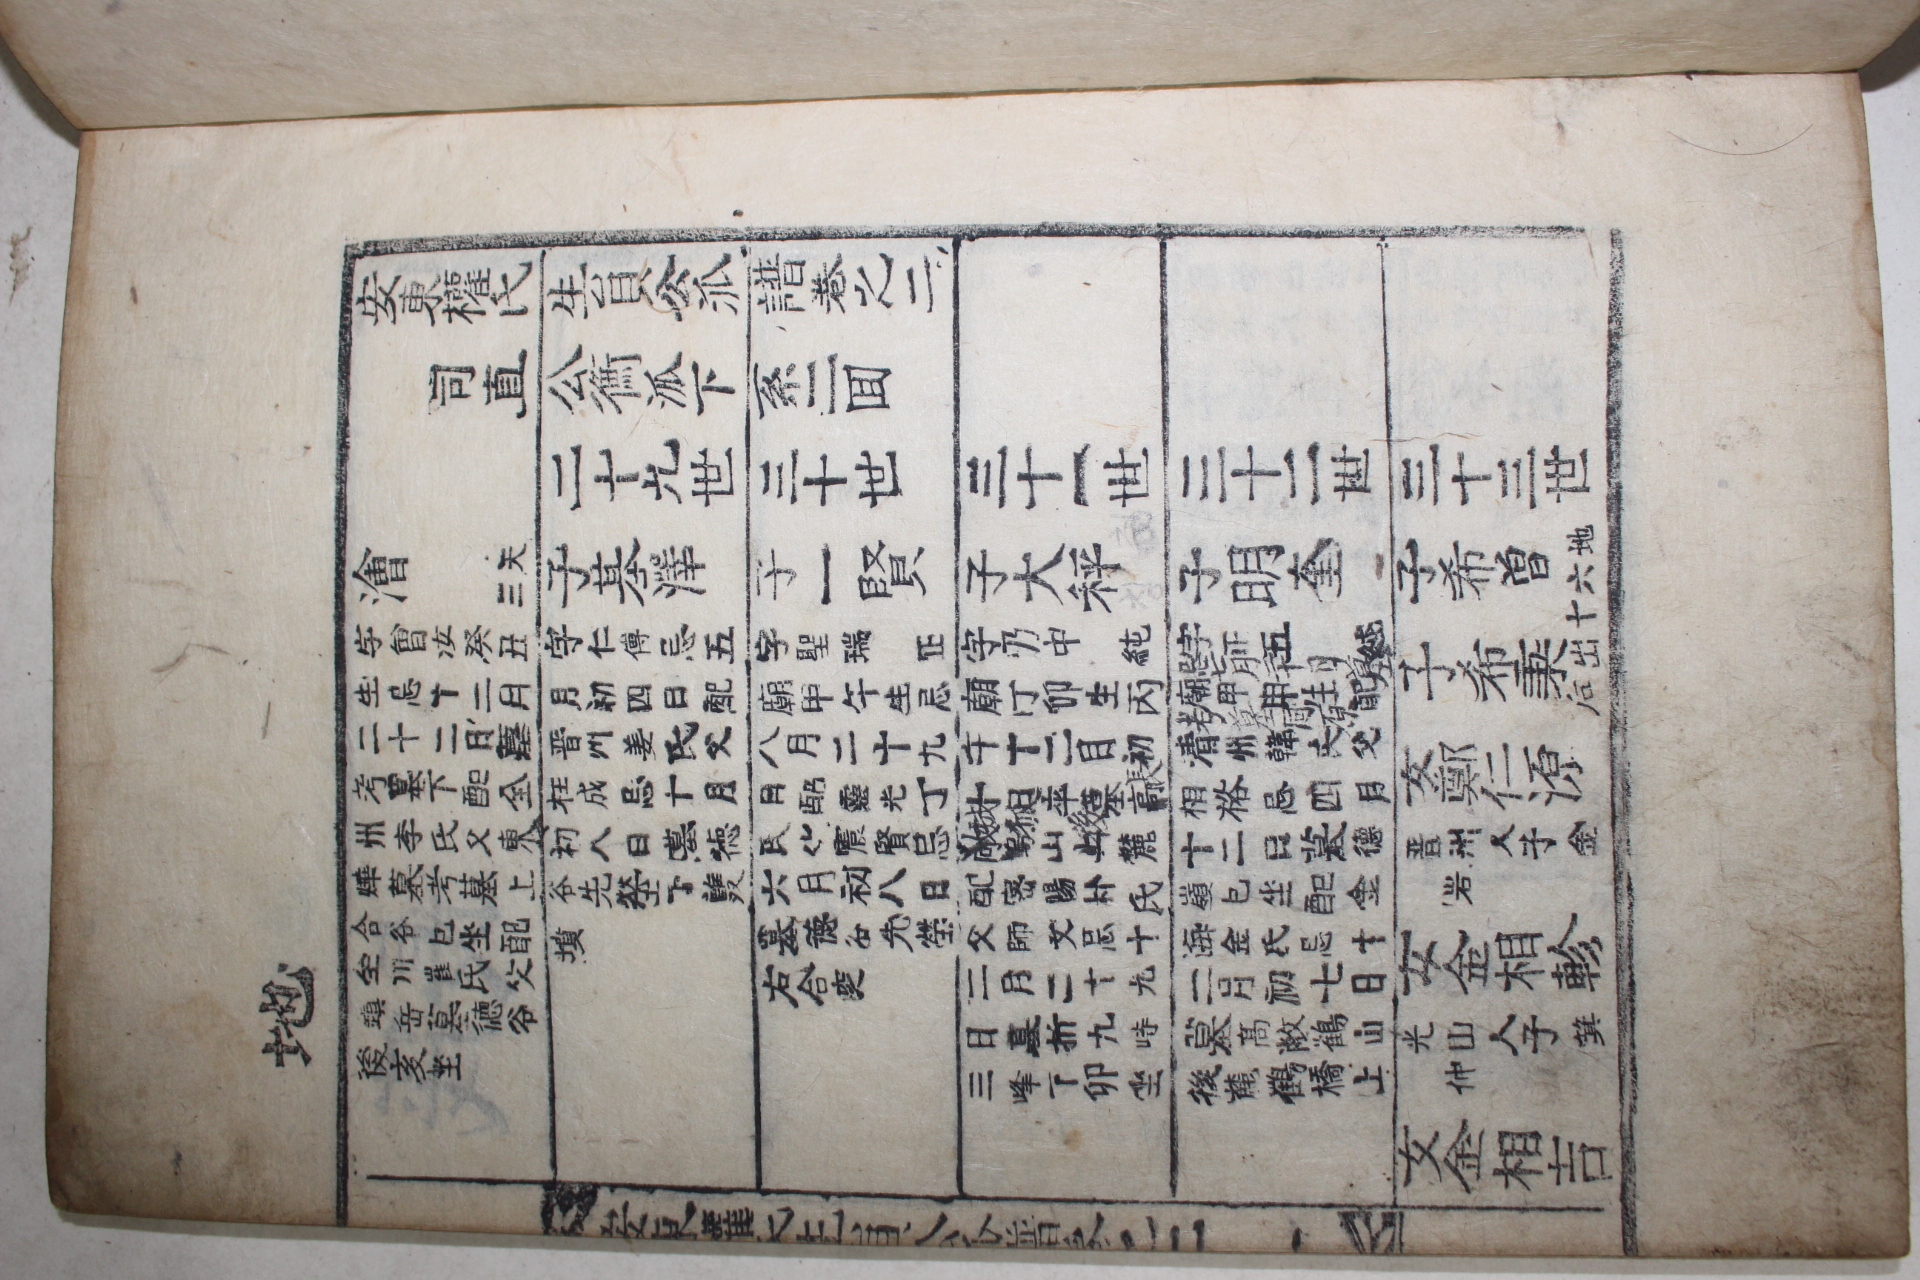 地
安東權氏生員公派譜卷之二
司直公衡派下系二囬
二十九世
三十世
三十一世
三十二世
三十三世
澮
天三
字曾汝癸丑
生忌十二月
二十二日墓
考墓下配全
州李氏父東
燁墓考墓上
合谷巳坐配
全川崔氏父
鎮岳墓德谷
後亥坐
子基澤
字仁傅忌五
月初四日配
晋州姜氏父
枉成忌十月
初八日墓德
谷先塋下雙
墳
子一賢
字聖瑞 正
廟甲午生忌
八月二十九
日配靈光丁
氏父震賢忌
六月初八日
墓德谷先塋
右合窆
子大秤
字乃中 純
廟丁卯生丙
午十二月初
十日卒墓高
敞鶴山北麓
配密陽朴氏
父師文忌十
二月二十九
日墓折九峙
三峰下卯坐
子明奎
字正五 純
廟甲申生配
清州韓氏父
相格忌四月
十二日墓德
嶺巳坐配金
海金氏忌十
二月初七日
墓高敞鶴山
後麓鶴橋上
子希曾
地六十
子希秉
出后
女鄭仁源
晋州人子金
岩
女金相軫
光山人子箕
仲
女金相吉
安東權氏生員公派譜卷之二